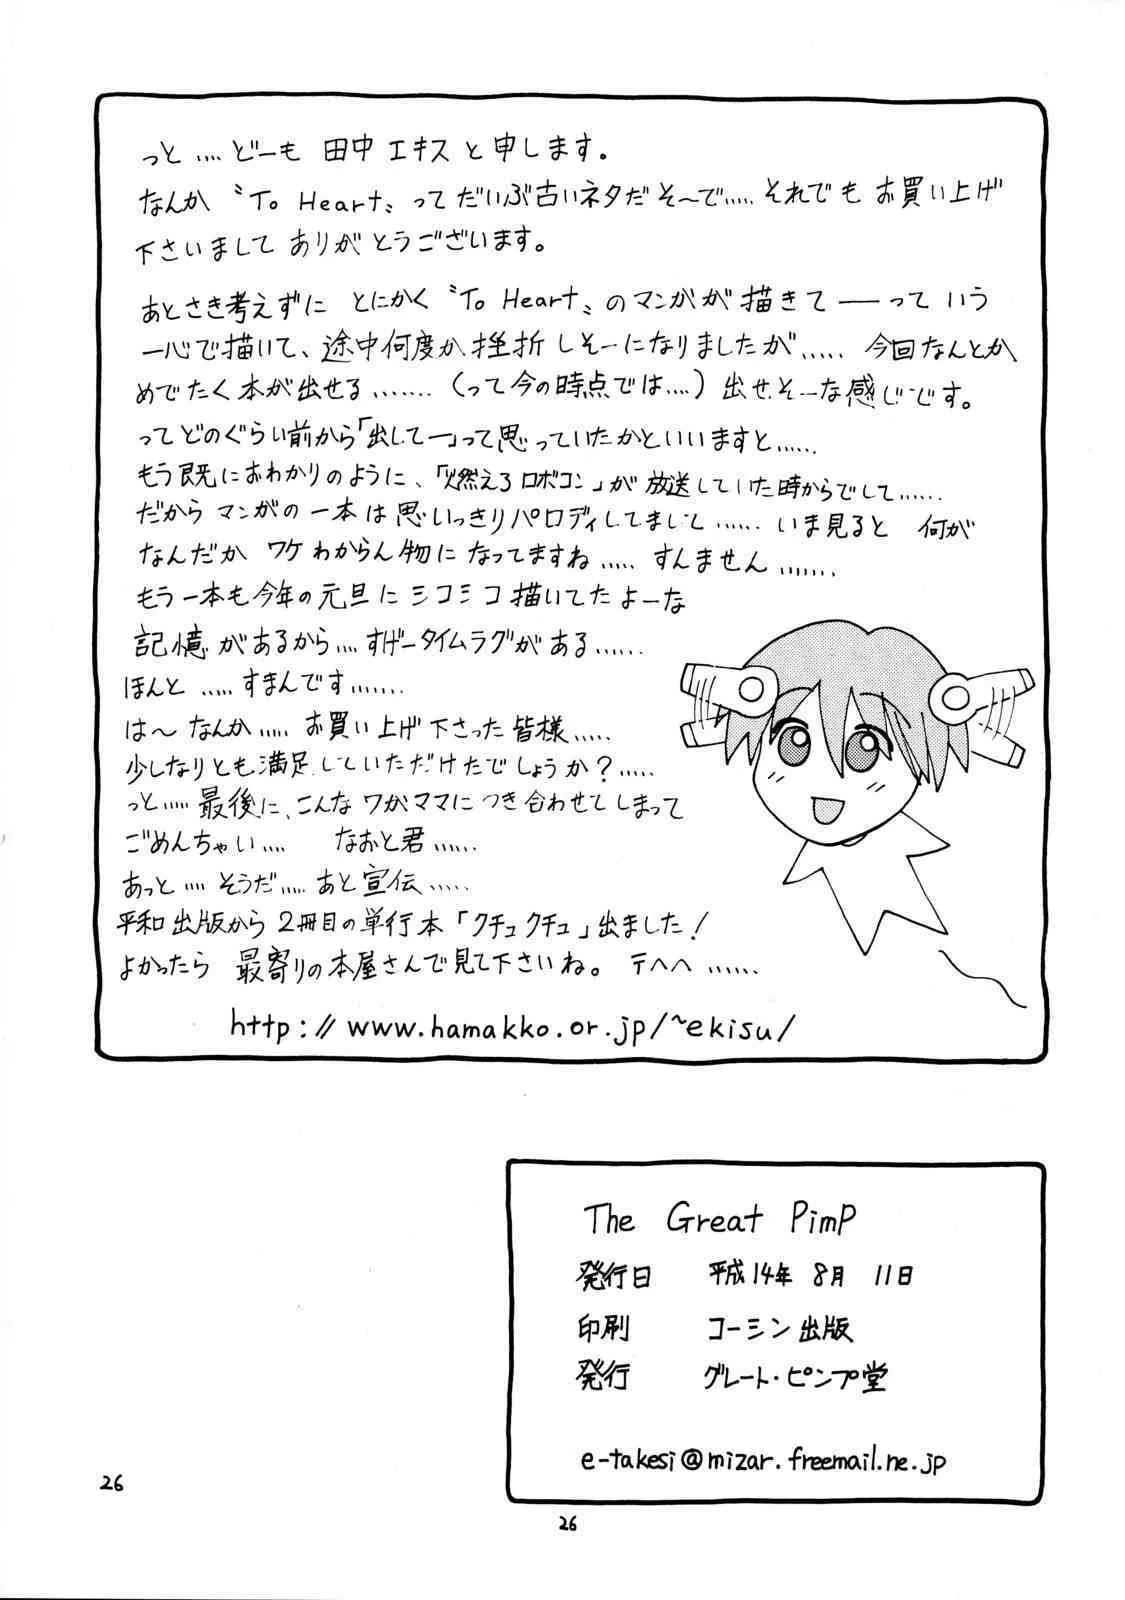 っと‥‥どーも 田中エキスと申します。
なんか〝To Heart〟ってだいぶ古いネタだそ〜で‥‥‥それでもお買い上げ
下さいまして ありがとうございます。
あとさき考えずに とにかく〝To Heart〟のマンガが描きて――って いう
一心で描いて、途中何度か挫折しそーになりましたが‥‥‥今回なんとか
めでたく本が出せる‥‥‥‥(って今の時点では‥‥)出せそーな感じです。
ってどのぐらい前から「出してー」って思っていたかといいますと‥‥‥
もう既におわかりのように、「燃えろロボコン」が放送していた時からでして‥‥‥
だからマンガの一本は思いっきりパロディしてまして‥‥‥いま見ると 何が
なんだかワケわからん物になってますね‥‥‥すんません‥‥‥‥
もう一本も今年の元旦にシコシコ描いてたよーな
記憶があるから‥‥すげータイムラグがある‥‥‥
ほんと‥‥‥すまんです‥‥‥‥
は〜なんか‥‥‥お買い上げ下さった皆様‥‥‥
少しなりとも満足していただけたでしょうか?‥‥‥
っと‥‥‥最後に、こんなワガママにつき合わせてしまって
ごめんちゃい‥‥ なおと君‥‥‥
あっと‥‥そうだ‥‥‥あと宣伝‥‥‥
平和出版から2冊目の単行本「クチュクチュ」出ました!
よかったら 最寄りの本屋さんで見て下さいね。テヘヘ‥‥‥
http://www.hamakko.or.jp/~ekisu/
The Great PimP
発行日 平成14年 8月 11日
印刷 コーシン出版
発行 グレート・ピンプ堂
e-takesi@mizar.freemail.ne.jp
26
26